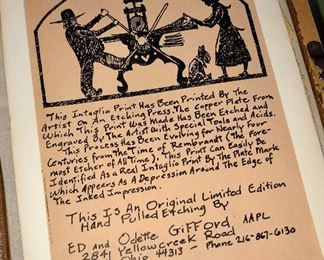 This Intaglio Print Has Been Printed By The
Artist On An Etching Press. The Copper Plate From
Which This Print Was Made Has Been Etched and
Engraved By The Artist With Special Tools and Acids.
This Process Has Been Evolving for Nearly Four
Centuries from The Time of Rembrandt (The Fore-
most Etcher of All Time). This Print Can Easily Be
Identified As a Real Intaglio Print By The Plate Mark
Which Appears As A Depression Around The Edge of
The Inked Impression.
This Is An Original Limited Edition
Hand Pulled Etching By
ED and Odette Gifford, AAPL
2841 Yellowcreek Road
Ohio 44313 - Phone 216-867-6130